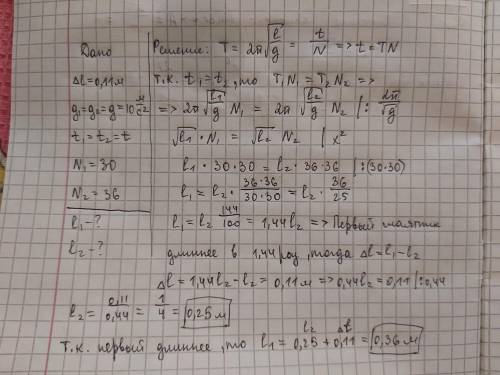 Дано
Δl=0,11м
g₁=g₂=g=10 м/с²
t₁=t₂=t
N₁=30
N₂=36
l₁-?
l₂-?
Решение: T=2π√(l/g) = t/N => t=TN
Т.к. t₁=t₂, то T₁N₁=T₂N₂ =>
=> 2π√(l₁/g) N₁ = 2π√(l₂/g) N₂ |: 2π/√g
√l₁ · N₁ = √l₂ N₂ | x²
l₁·30·30 = l₂·36·36 |:(30·30)
l₁ = l₂ · 36·36/30·30 = l₂ · 36/25
l₁ = l₂ 144/100 = 1,44l₂ => Первый маятник
длиннее в 1,44 раз, тогда Δl=l₁-l₂
Δl=1,44l₂-l₂=0,11м => 0,44l₂=0,11 |:0,44
l₂ = 0,11/0,44 = 1/4 = 0,25м
l₂ Δl
Т.к. первый длиннее, то l₁=0,25+0,11=0,36м